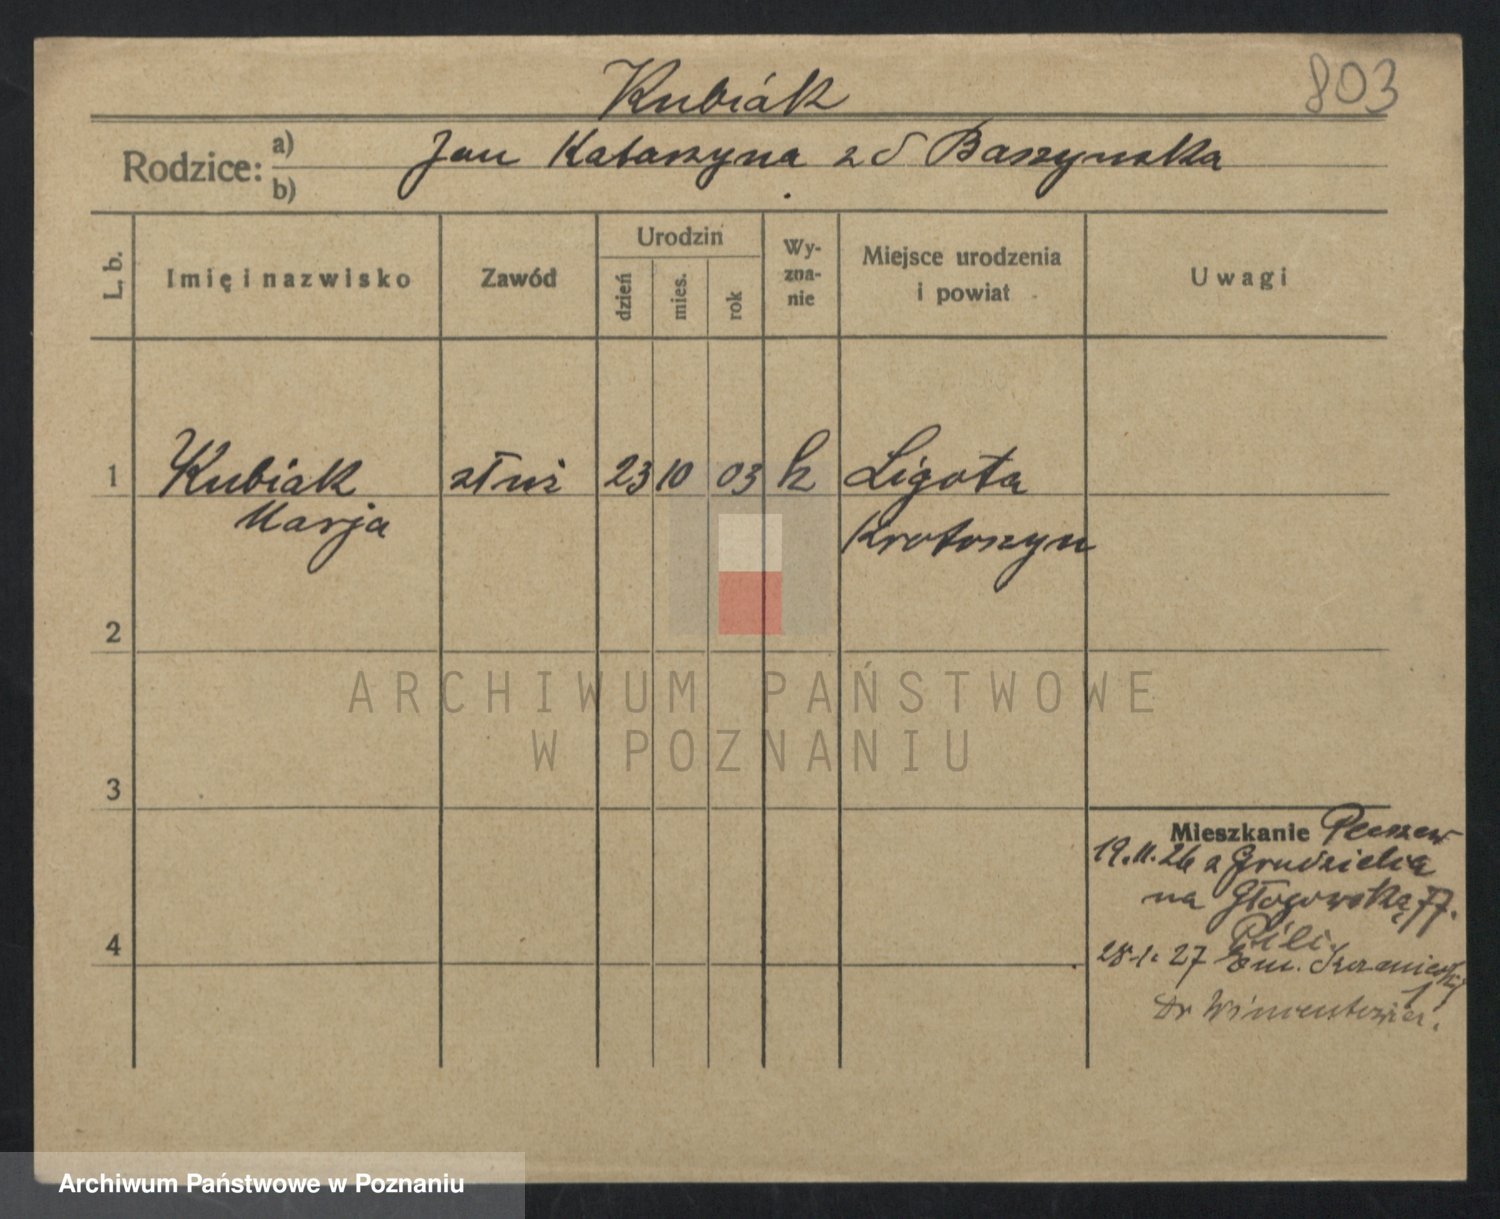 Kubiák
803
Rodzice: a) b)
Jan Katarszyna z d Baszynska
L. b.
Imię i nazwisko
Zawód
Urodzin
dzień
mies.
rok
Wy-
zna-
nie
Miejsce urodzenia
i powiat
Uwagi
1
Kubiak
Marja
służ
23
10
03
k
Ligota
Krotoszyn
2
3
4
Mieszkanie
19.11.26 z Grudzielca
na Głogowską 77.
28.1. 27
Dr
ARCHIWUM PAŃSTWOWE
W POZNANIU
Archiwum Państwowe w Poznaniu